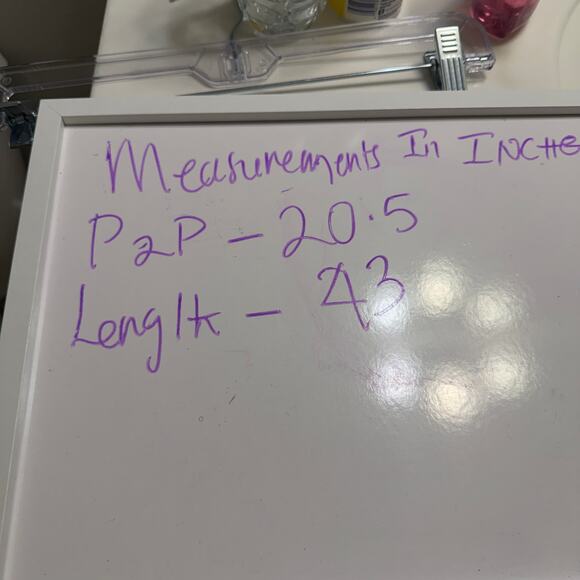 Measurements In INCHE
P2P - 20.5
Length - 43